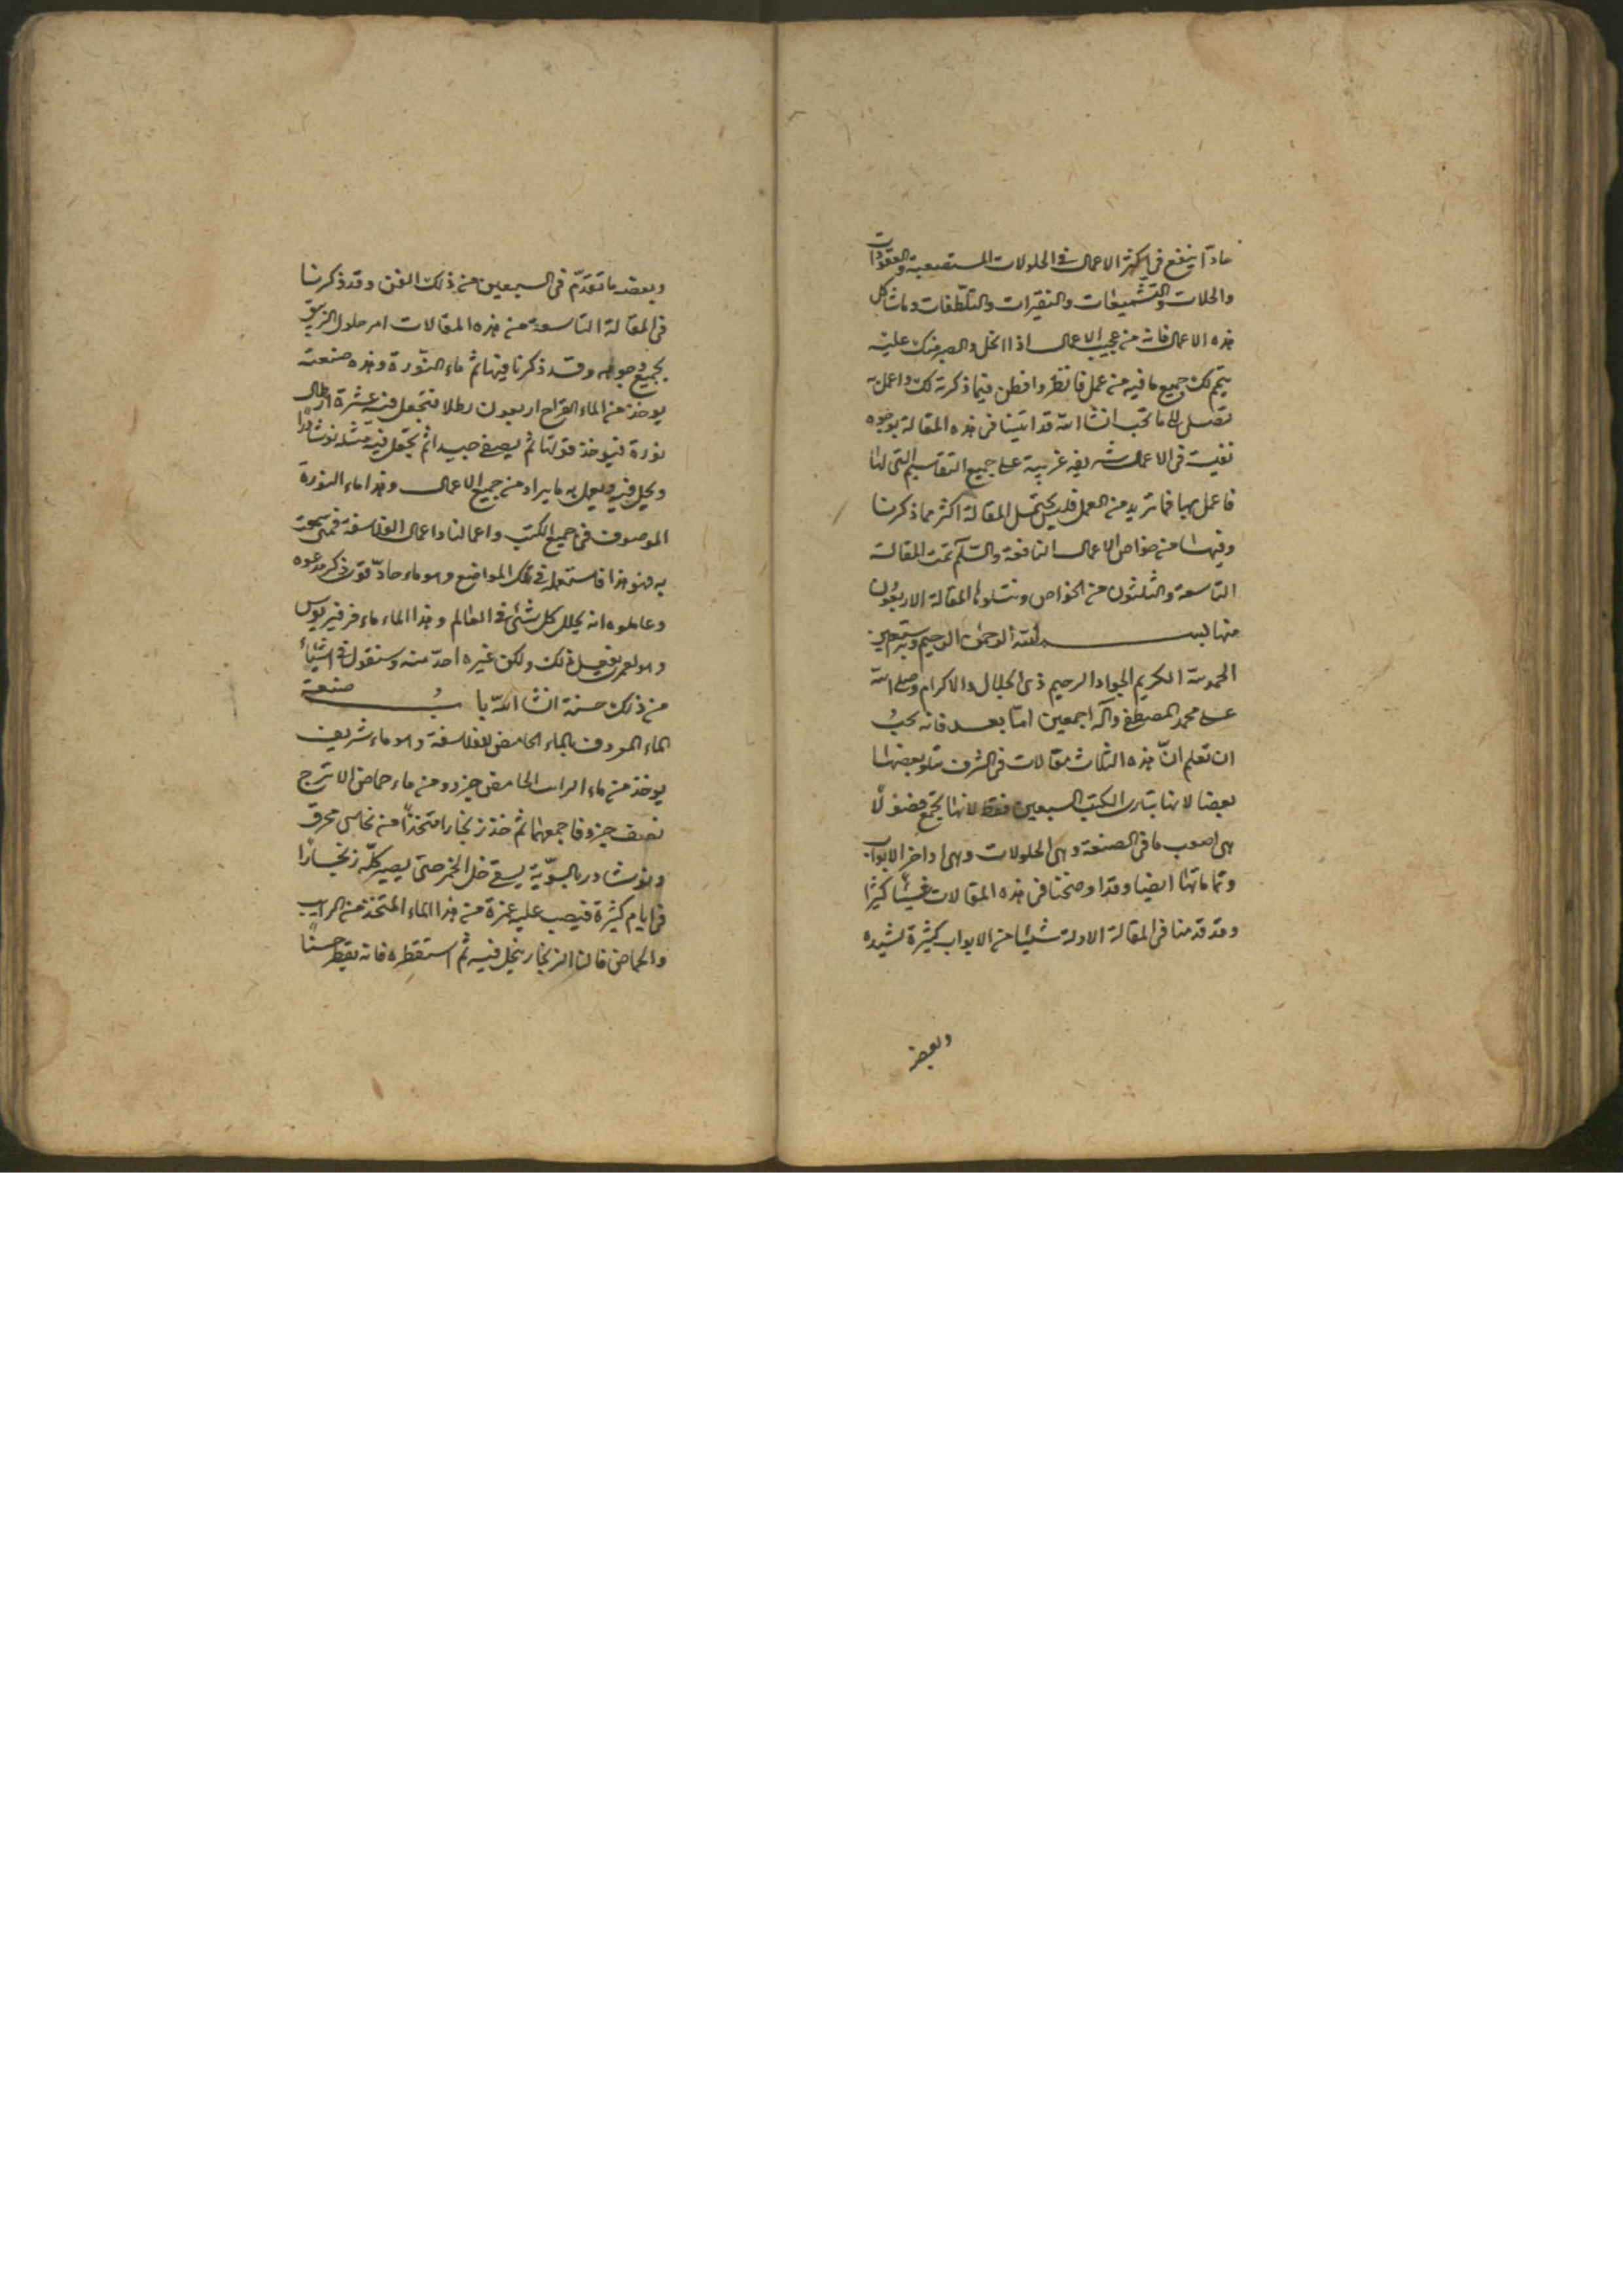 حادّا ينفع فى اكثر الاعمال فى الحلولات المستصعبة والعقودات
والحلات والتشميعات والتقيرات والتلطّفات وما شاكل
هذه الاعمال فانه من عجيب الاعمال اذا انحل والصبر منك عليه
يتم لك جميع ما فيه من عمل فانظر وافطن فيما ذكرته لك واعمل به
تصل الى ما تحب انشا الله قد اتينا فى هذه المقالة بوجوه
نفيسة فى الاعمال شريفه غريبة على جميع التقاسيم التى لها
فاعمل بها فما تريد من العمل فليس يحتمل المقالة اكثر مما ذكرنا
وفيها من خواص الاعمال النافعة والسّلم تمت المقالة
التاسعة والثلثون من الخواص وتتلوها المقالة الاربعُون
منها بسم الله الرحمن الرحيم وبه نستعين
الحمد لله الكريم الجواد الرحيم ذى الجلال والاكرام وصلى الله
على محمد المصطفى وآله اجمعين امّا بعد فانه يجبُ
ان تعلم انّ هذه الثلث مقالات فى الشرف تتلو بعضها
بعضا لانها الكتب السبعين فقط لانها تجمع فضولًا
هى اصعب ما فى الصنعة وهى الحلولات وهى اواخر الابواب
وتماماتها ايضا وقد اوضحنا فى هذه المقالات شيئًا كثيرًا
وقد قدمنا فى المقالة الاولة شيئا من الابواب كثيرة لشيده
وبعضه
وبعضه ما تقدّم فى السبعين من ذلك الفن وقد ذكرنا
فى المقالة التاسعة من هذه المقالات امر حلول الزيبق
بجميع وجوهه وقد ذكرنا فيها ثم ماء النّورة وهذه صنعته
يوخذ من الماء القراح اربعون رطلا فتجعل فيه عشرة ارطال
نورة فيوخذ قوتها ثم يصفى جيدا ثم تجعل فيه مثله نوشادرا
ويحل فيه ويعمل به ما يراد من جميع الاعمال وهذا ماء النورة
الموصوف فى جميع الكتب واعمالنا واعمال الفلاسفة فمتى سمعت
به فهو هذا فاستعمله فى تلك المواضع وهو ماء حادّ قوى ذكر مدعوه
وعاملوه انه يحلل كل شئ فى العالم وهذا الماء ماء فرفيريوس
وهو لعمرى يفعل ذلك ولكن غيره احدّ منه وسنقول فى اشياء
من ذلك حسنة انشا الله بابُ صنعة
الماء المعروف بالماء الحامض للفلاسفة وهو ماء شريف
يوخذ من ماء الرائب الحامض جزء ومن ماء حماض الاترج
نصف جزء فاجمعهما ثم خذ زنجارا متخذًا من نحاس محرق
ونوشادر بالسوّية يسقى خل الخمر حتى يصير كلّه زنجارًا
فى ايام كثيرة فيصب عليه عشرة من هذا الماء المتخذ من الرائب
والحماض فالنا الزنجار ينحل فيه ثم استقطره فانه يقطر حسنًا